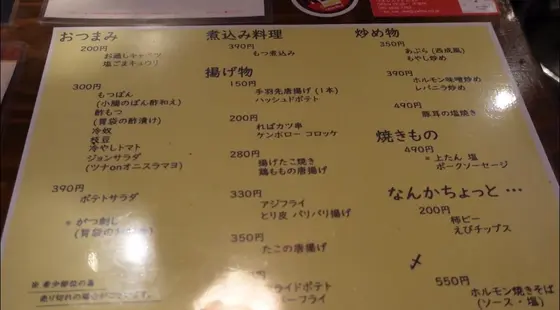 おつまみ
200円
お通しキャベツ
塩ごまキュウリ
300円
もつぽん
(小腸のぽん酢和え)
酢もつ
(胃袋の酢漬け)
冷奴
枝豆
冷やしトマト
ジョンサラダ
(ツナonオニスラマヨ)
390円
ポテトサラダ
※ がつ刺し
煮込み料理
390円
もつ煮込み
揚げ物
150円
手羽先唐揚げ (1本)
ハッシュドポテト
200円
ればカツ串
ケンボロー コロッケ
280円
揚げたこ焼き
鶏ももの唐揚げ
330円
アジフライ
とり皮 パリパリ揚げ
350円
たこの唐揚げ
ライドポテト
フライ
炒め物
350円
あぶら (西成風)
もやし炒め
390円
ホルモン味噌炒め
レバニラ炒め
490円
豚耳の塩焼き
焼きもの
490円
※ 上たん 塩
ポークソーセージ
なんかちょっと…
200円
柿ピー
えびチップス
550円
ホルモン焼きそば
(ソース・塩)